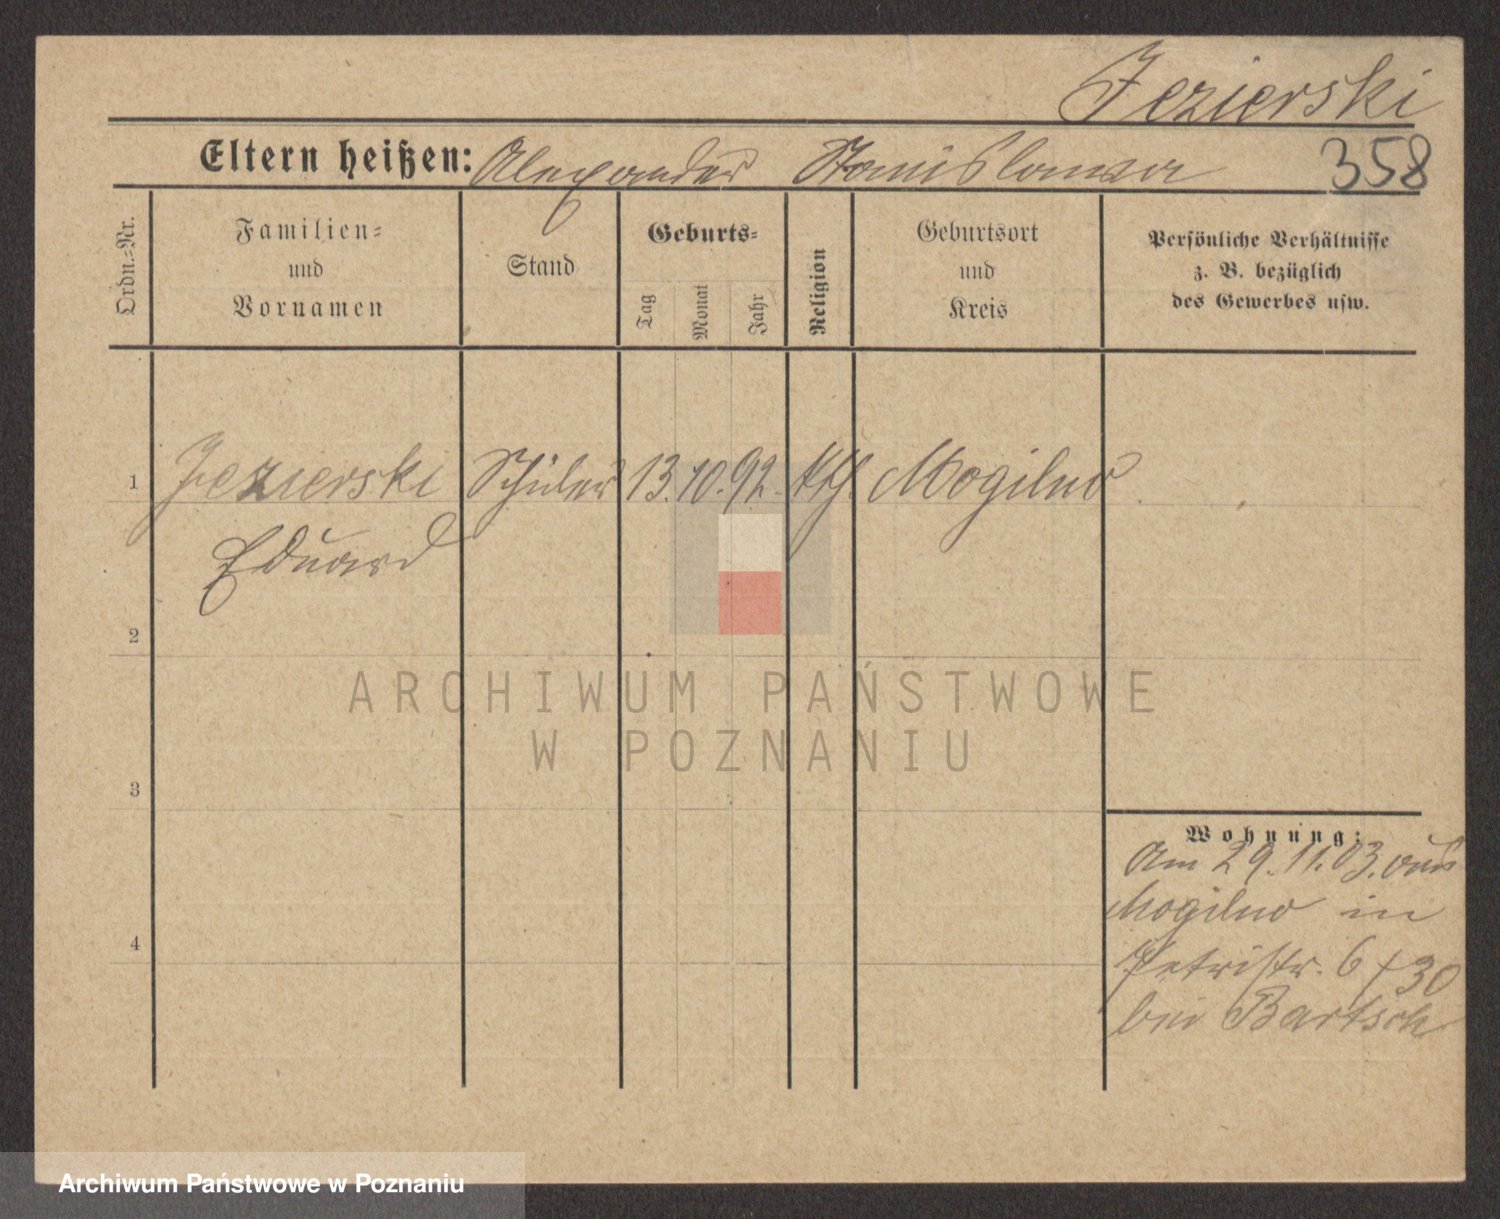 Jezierski
Eltern heißen: Alexander Stanislawa 358
Ordn.-Nr.
Familien- und Vornamen
Stand
Geburts-
Tag
Monat
Jahr
Religion
Geburtsort und Kreis
Persönliche Verhältnisse
z. B. bezüglich
des Gewerbes usw.
1 Jezierski Schüler 13. 10. 92. kth. Mogilno
Eduard
2
3
4
Wohnung:
Am 29.11.03. aus
Mogilno in
Petristr. 6 / 30
bei Bartsch
ARCHIWUM PAŃSTWOWE
W POZNANIU
Archiwum Państwowe w Poznaniu